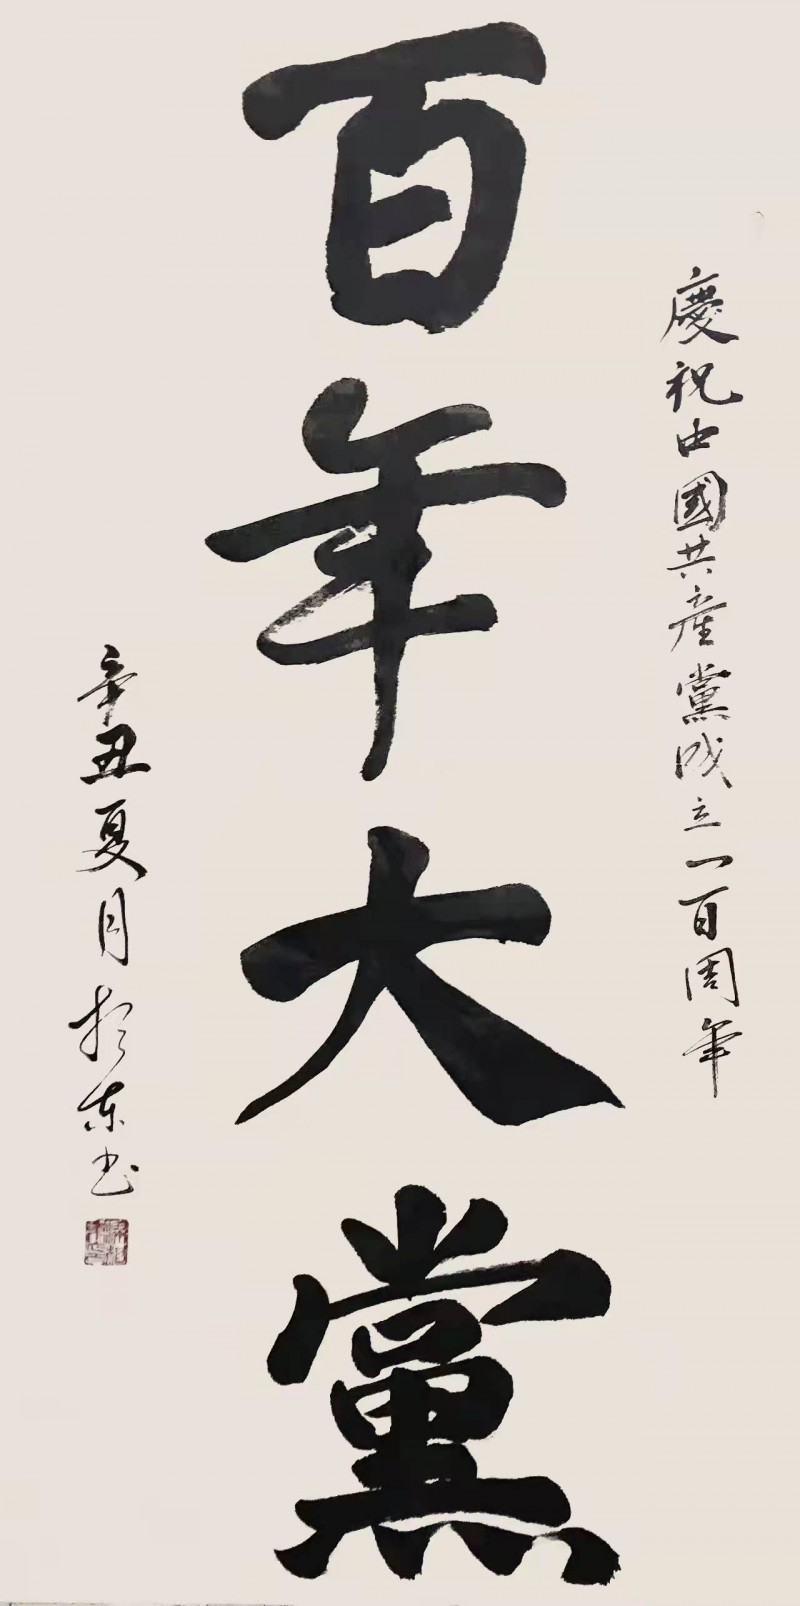 慶祝中國共産黨成立一百周年
百年大黨
辛丑夏月东书